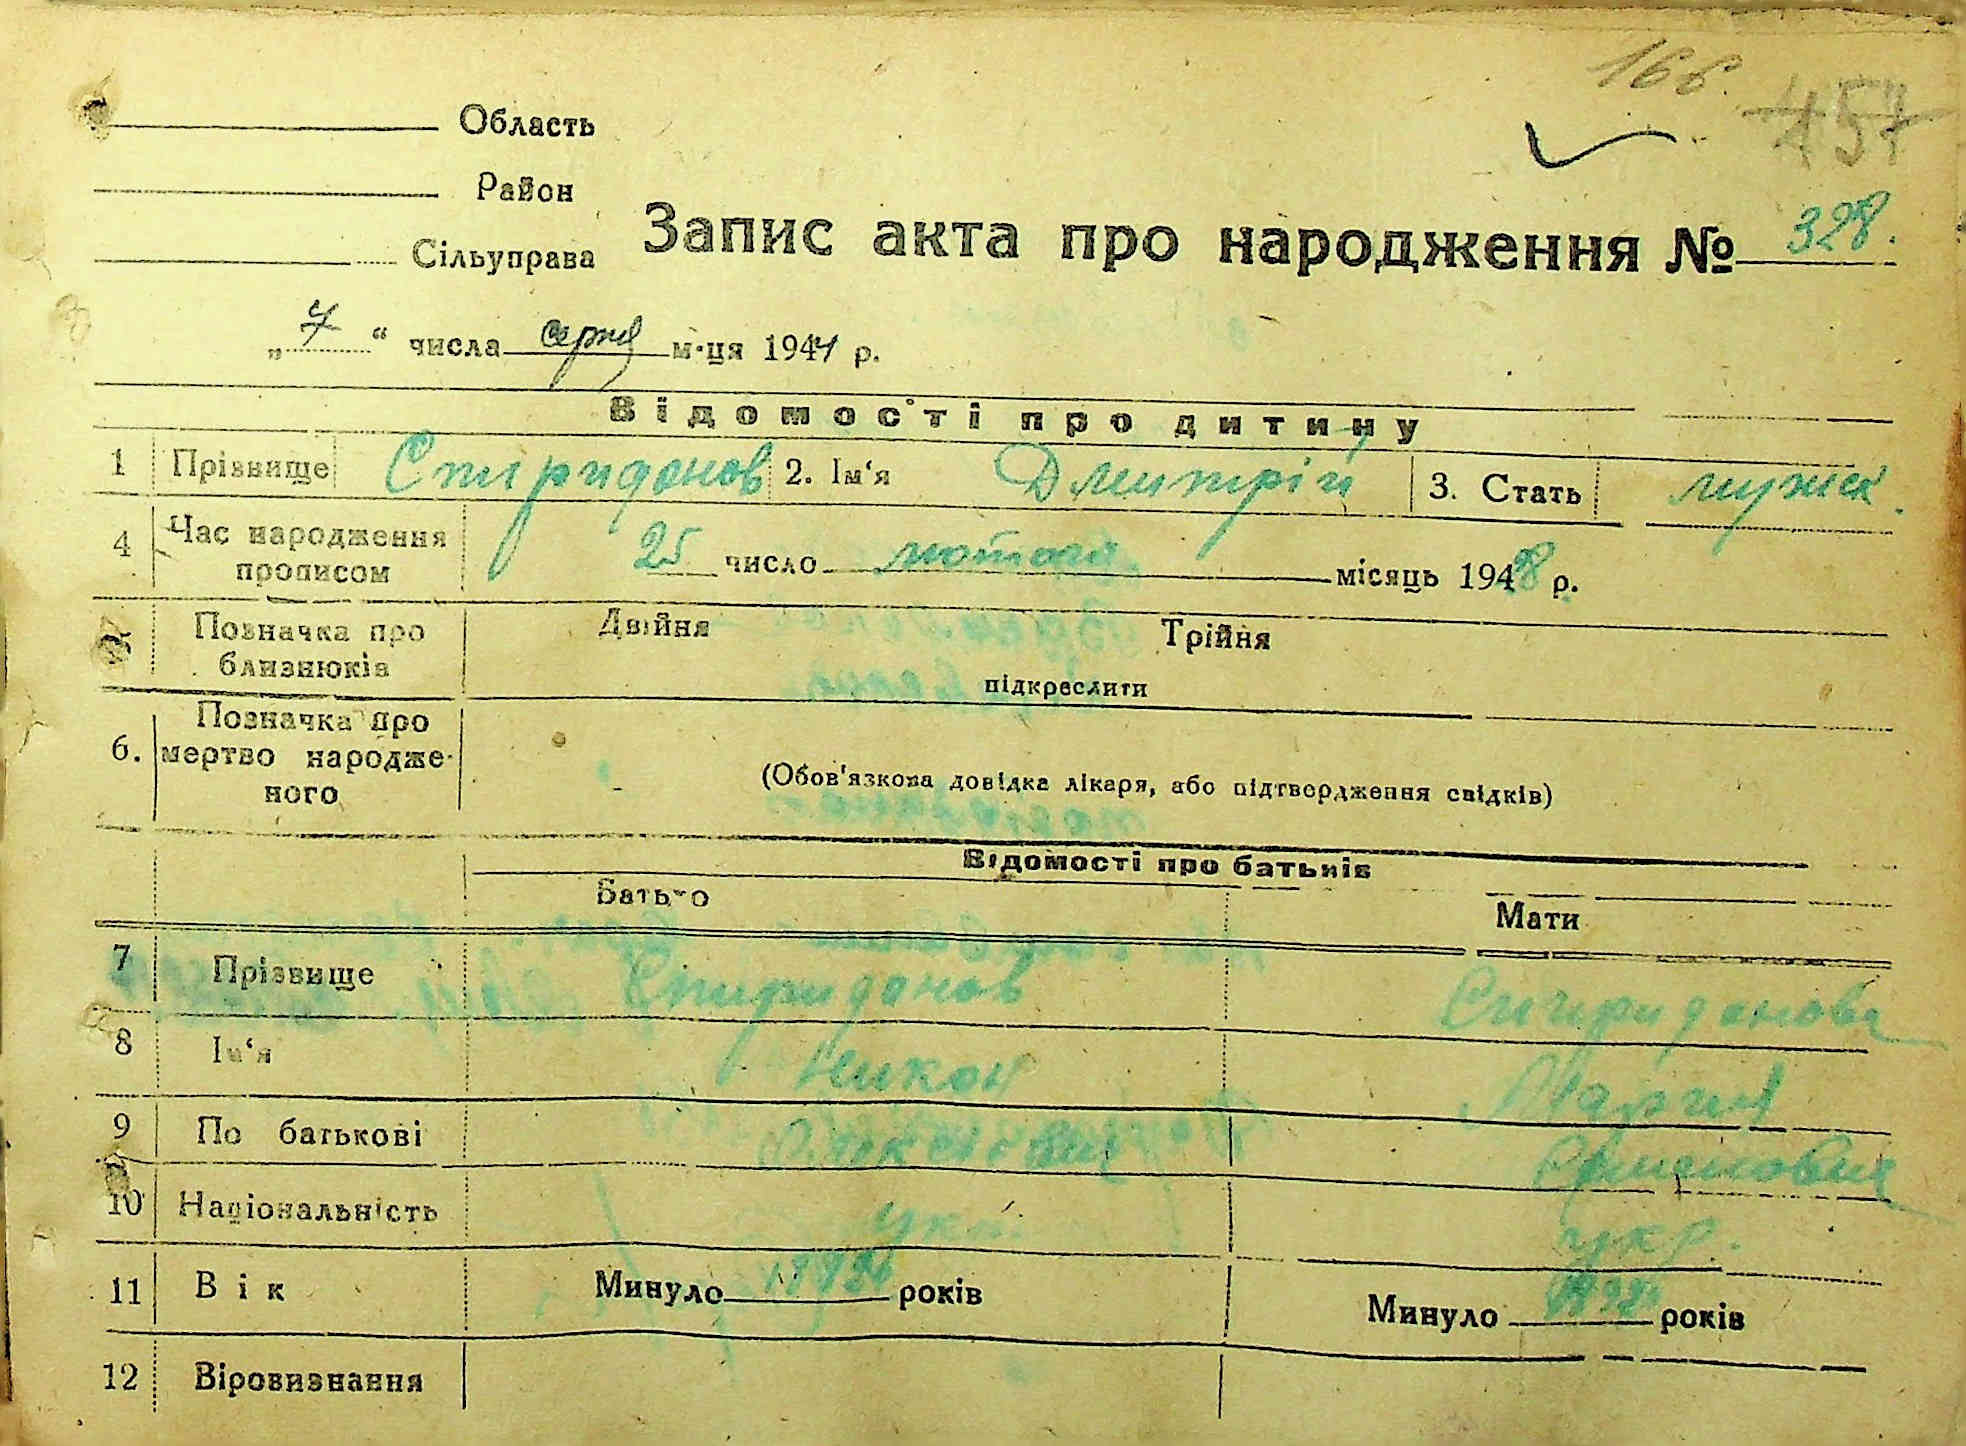 166.
457
Область
Район
Сільуправа
Запис акта про народження № 328.
„7“ числа серпня м-ця 1944 р.
Відомості про дитину
1 Прізвище Спиридонов 2. Ім‘я Дмитрій 3. Стать мужск.
4 Час народження прописом 25 число лютого місяць 194 р.
5 Позначка про близнюків Двійня Трійня
підкреслити
6. Позначка про мертво народже-ного
(Обов'язкова довідка лікаря, або підтвердження свідків)
Відомості про батьків
Батько Мати
7 Прізвище Спиридонов Спиридонова
8 Ім‘я Никон Мария
9 По батькові Алексеевич
10 Національність укр. укр.
11 Вік Минуло років Минуло років
12 Віровизнання